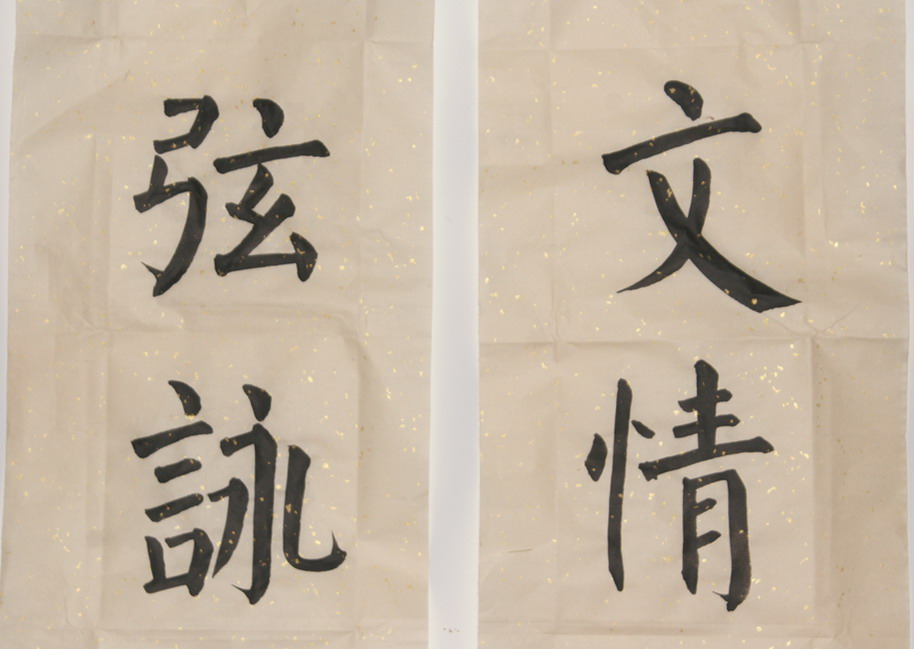 文情
弦詠